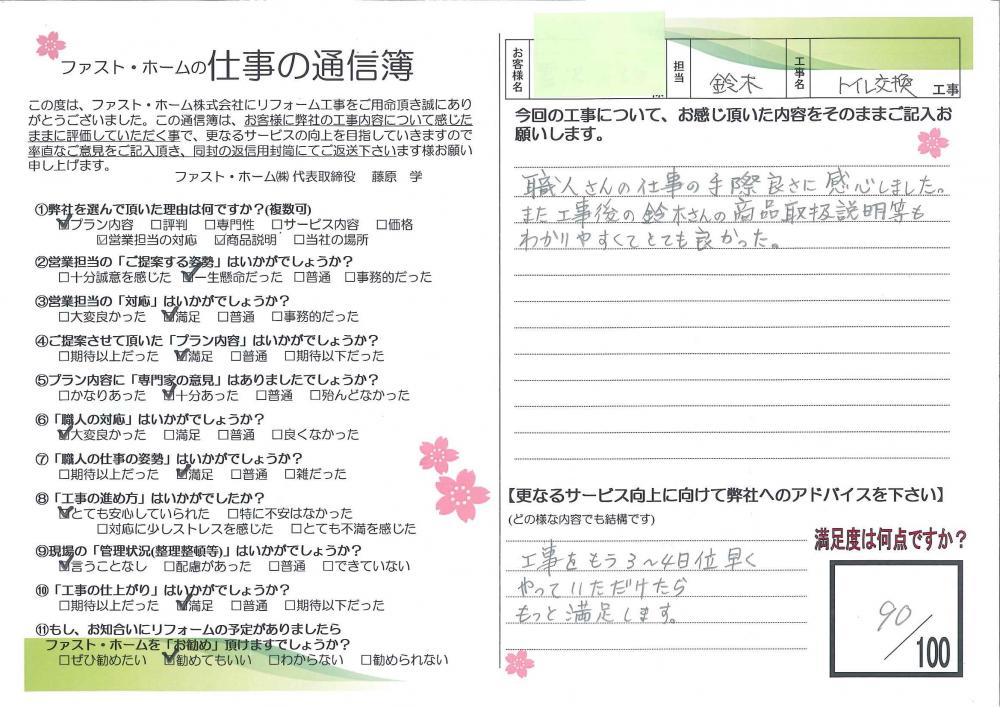 ファスト・ホームの仕事の通信簿
この度は、ファスト・ホーム株式会社にリフォーム工事をご用命頂き誠にあり
がとうございました。この通信簿は、お客様に弊社の工事内容について感じた
ままに評価していただく事で、更なるサービスの向上を目指していきますので
率直なご意見をご記入頂き、同封の返信用封筒にてご返送下さいます様お願い
申し上げます。
ファスト・ホーム㈱ 代表取締役 藤原 学
①弊社を選んで頂いた理由は何ですか?(複数可)
☑プラン内容 □評判 □専門性 □サービス内容 □価格
☑営業担当の対応 ☑商品説明 □当社の場所
②営業担当の「ご提案する姿勢」はいかがでしょうか?
□十分誠意を感じた ☑一生懸命だった □普通 □事務的だった
③営業担当の「対応」はいかがでしょうか?
□大変良かった ☑満足 □普通 □事務的だった
④ご提案させて頂いた「プラン内容」はいかがでしょうか?
□期待以上だった ☑満足 □普通 □期待以下だった
⑤プラン内容に「専門家の意見」はありましたでしょうか?
□かなりあった ☑十分あった □普通 □殆んどなかった
⑥「職人の対応」はいかがでしょうか?
☑大変良かった □満足 □普通 □良くなかった
⑦「職人の仕事の姿勢」はいかがでしょうか?
□期待以上だった ☑満足 □普通 □雑だった
⑧「工事の進め方」はいかがでしたか?
☑とても安心していられた □特に不安はなかった
□対応に少しストレスを感じた □とても不満を感じた
⑨現場の「管理状況(整理整頓等)」はいかがでしょうか?
☑言うことなし □配慮があった □普通 □できていない
⑩「工事の仕上がり」はいかがでしょうか?
□期待以上だった ☑満足 □普通 □期待以下だった
⑪もし、お知合いにリフォームの予定がありましたら
ファスト・ホームを「お勧め」頂けますでしょうか?
□ぜひ勧めたい ☑勧めてもいい □わからない □勧められない
お客様名
担当 鈴木
工事名 トイレ交換 工事
今回の工事について、お感じ頂いた内容をそのままご記入お
願いします。
職人さんの仕事の手際良さに感心しました。
また工事後の鈴木さんの商品取扱説明等も
わかりやすくてとても良かった。
【更なるサービス向上に向けて弊社へのアドバイスを下さい】
(どの様な内容でも結構です)
工事をもう3～4日位早く
やっていただけたら
もっと満足します。
満足度は何点ですか?
90/100